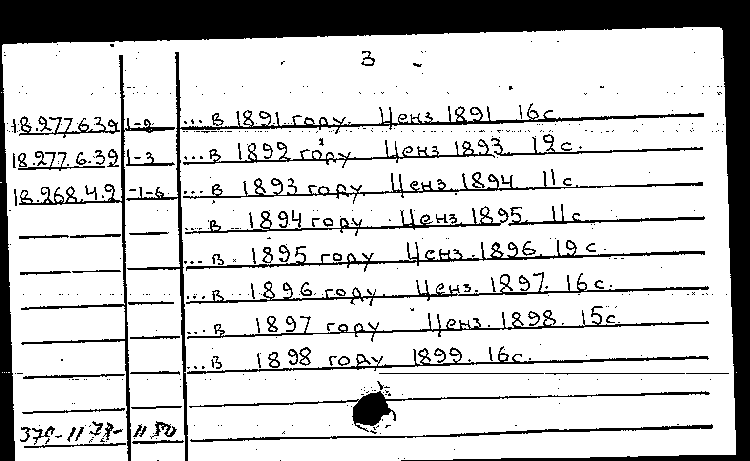 3
18.277.6.39 1-2 ... в 1891 году. Ценз 1891 16с.
18.277.6.39 1-3 ... в 1892 году Ценз 1893. 12с.
18.268.4.2 -1-6 ... в 1893 году Ценз. 1894 11с
... в 1894 году Ценз. 1895. 11с
... в 1895 году Ценз. 1896. 19с.
... в 1896 году. Ценз. 1897. 16с.
... в 1897 году Ценз. 1898. 15с.
... в 1898 году 1899. 16с.
379-1178- 1180